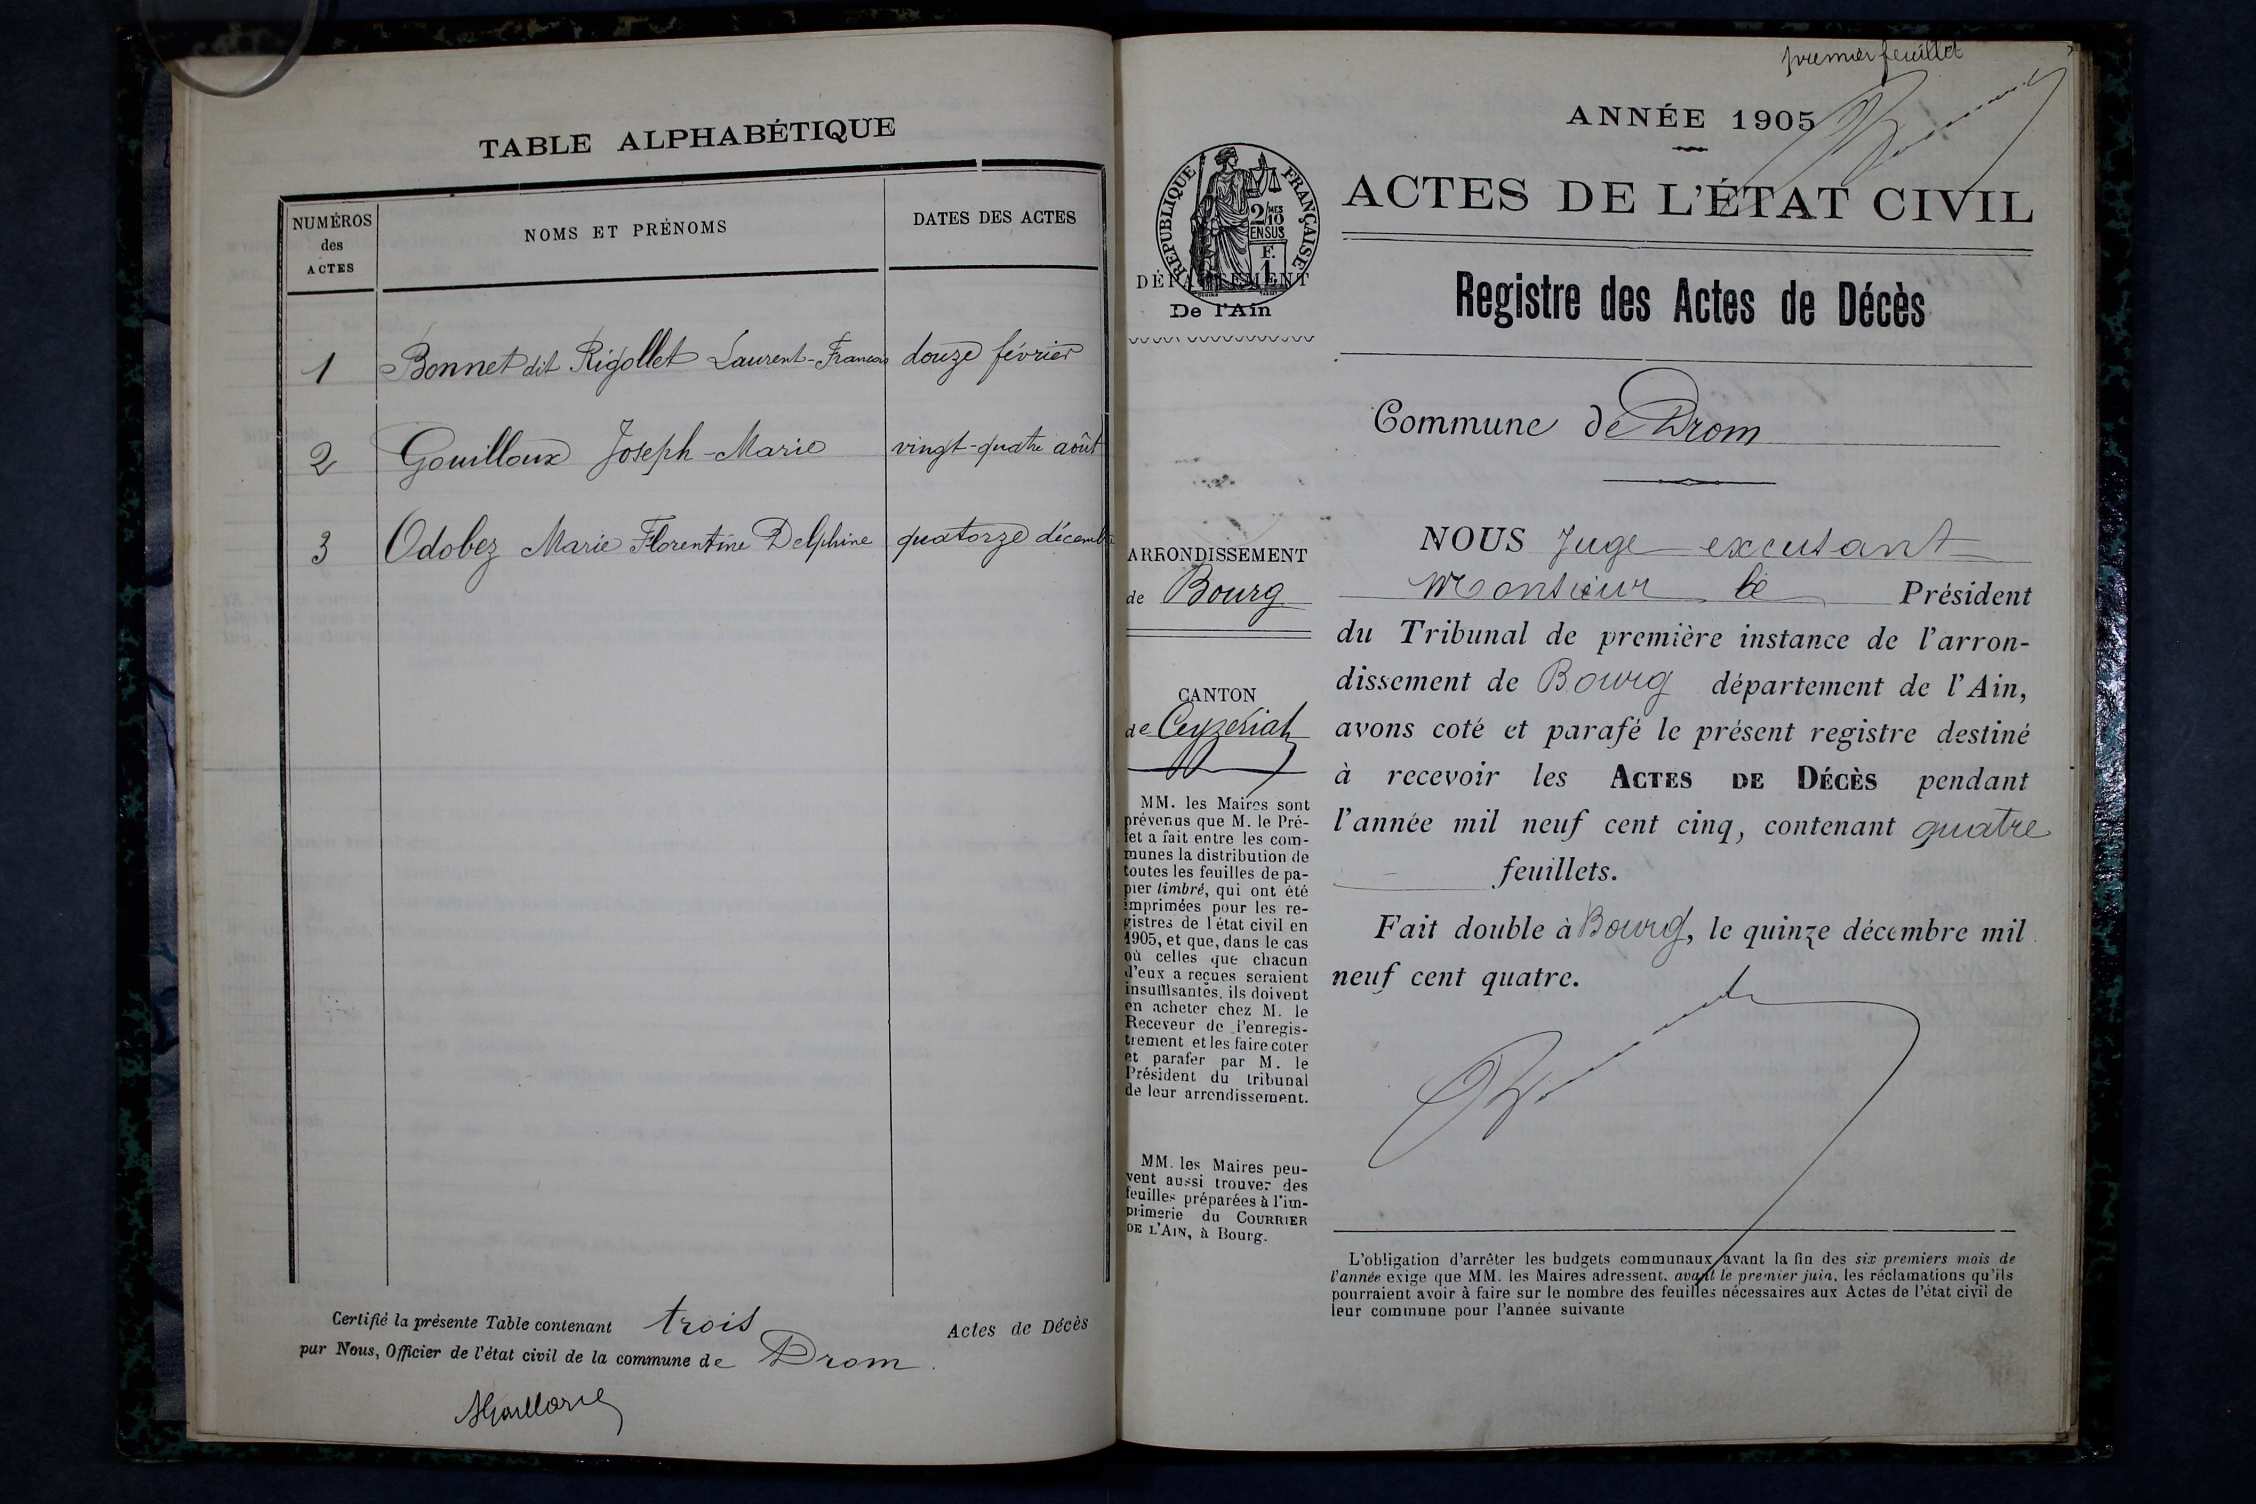 TABLE ALPHABÉTIQUE
NUMÉROS des ACTES
NOMS ET PRÉNOMS
DATES DES ACTES
1 Bonnet dit Rigollet Laurent-Francois douze février
2 Gouilloux Joseph-Marie vingt-quatre août
3 Odobez Marie Florentine Delphine quatorze décembre
Certifié la présente Table contenant trois Actes de Décès
par Nous, Officier de l'état civil de la commune de Drom.
premier feuillet
ANNÉE 1905
ACTES DE L'ÉTAT CIVIL
RÉPUBLIQUE FRANÇAISE
2/10 MES
EN SUS
F.
1
DÉPARTEMENT
De l'Ain
Registre des Actes de Décès
Commune de Drom
ARRONDISSEMENT
de Bourg
CANTON
de Ceyzériat
MM. les Maires sont
prévenus que M. le Pré-
fet a fait entre les com-
munes la distribution de
toutes les feuilles de pa-
pier timbré, qui ont été
imprimées pour les re-
gistres de l'état civil en
1905, et que, dans le cas
où celles que chacun
d'eux a reçues seraient
insuffisantes, ils doivent
en acheter chez M. le
Receveur de l'enregis-
trement et les faire coter
et parafer par M. le
Président du tribunal
de leur arrondissement.
MM. les Maires peu-
vent aussi trouver des
feuilles préparées à l'im-
primerie du COURRIER
DE L'AIN, à Bourg.
NOUS Juge excusant
Monsieur le Président
du Tribunal de première instance de l'arron-
dissement de Bourg département de l'Ain,
avons coté et parafé le présent registre destiné
à recevoir les ACTES DE DÉCÈS pendant
l'année mil neuf cent cinq, contenant quatre
feuillets.
Fait double à Bourg, le quinze décembre mil
neuf cent quatre.
L'obligation d'arrêter les budgets communaux avant la fin des six premiers mois de
l'année exige que MM. les Maires adressent, avant le premier juin, les réclamations qu'ils
pourraient avoir à faire sur le nombre des feuilles nécessaires aux Actes de l'état civil de
leur commune pour l'année suivante